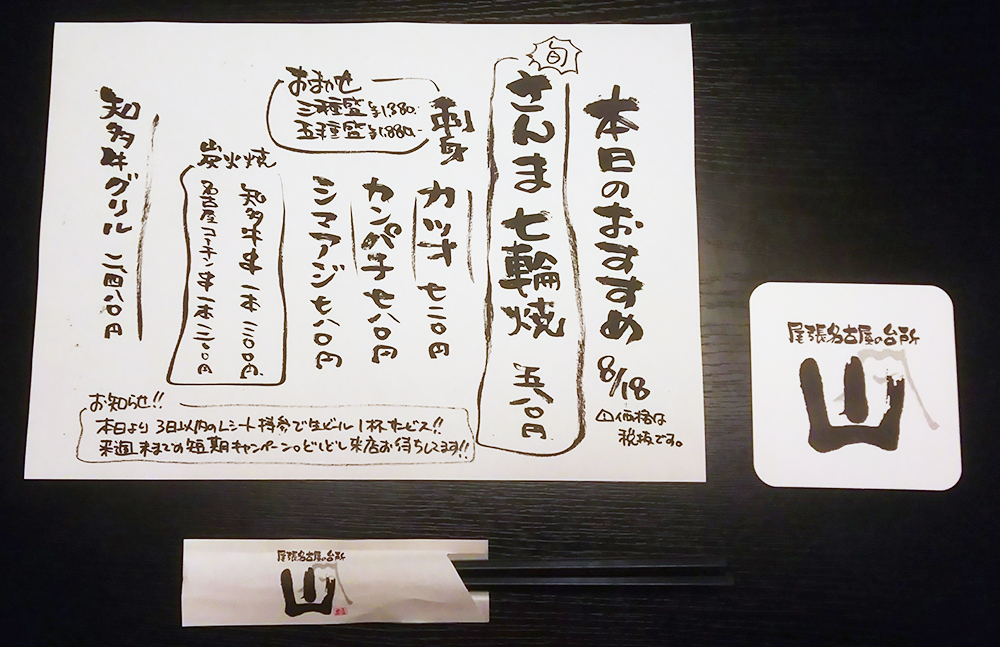 本日のおすすめ 8/18
⚠価格は
税抜です。
旬
さんま 七輪焼 五八〇円
刺身
おまかせ
三種盛 ¥1,380.-
五種盛 ¥1,880.-
カツオ 七二〇円
カンパチ 七八〇円
シマアジ 七八〇円
炭火焼
知多牛串 一本 三〇〇円
名古屋コーチン串 一本 二二〇〇円
知多牛グリル 二、四八〇円
お知らせ!!
本日より 3日以内のレシート持参で生ビール1杯サービス!!
来週末までの短期キャンペーン。どしどし来店お待ちしてます!!
尾張名古屋の台所
尾張名古屋の台所